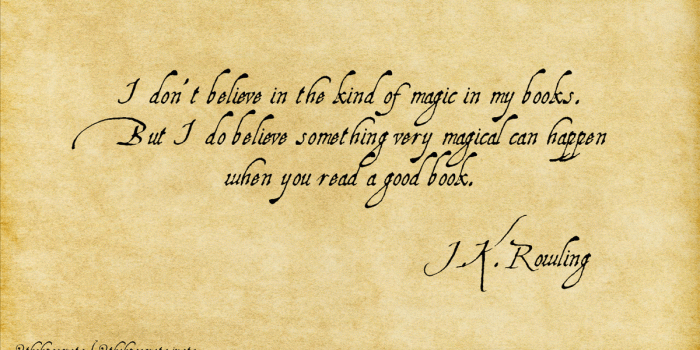 I don't believe in the kind of magic in my books.
But I do believe something very magical can happen
when you read a good book.
J.K. Rowling